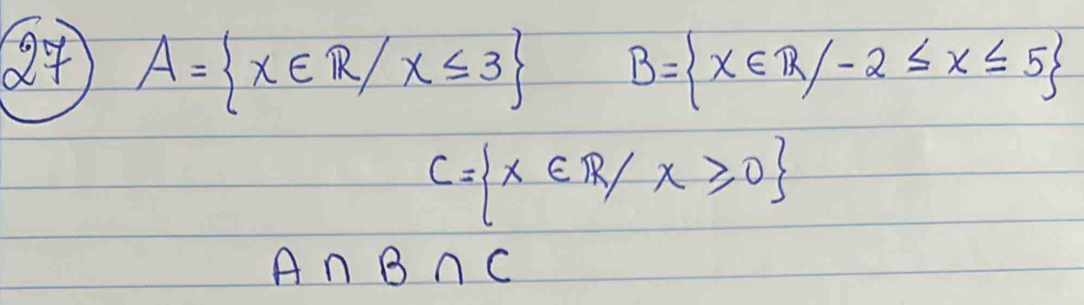 27 A = {x ∈ ℝ / x ≤ 3} B = {x ∈ ℝ / -2 ≤ x ≤ 5}
C = {x ∈ ℝ / x ≥ 0}
A ∩ B ∩ C